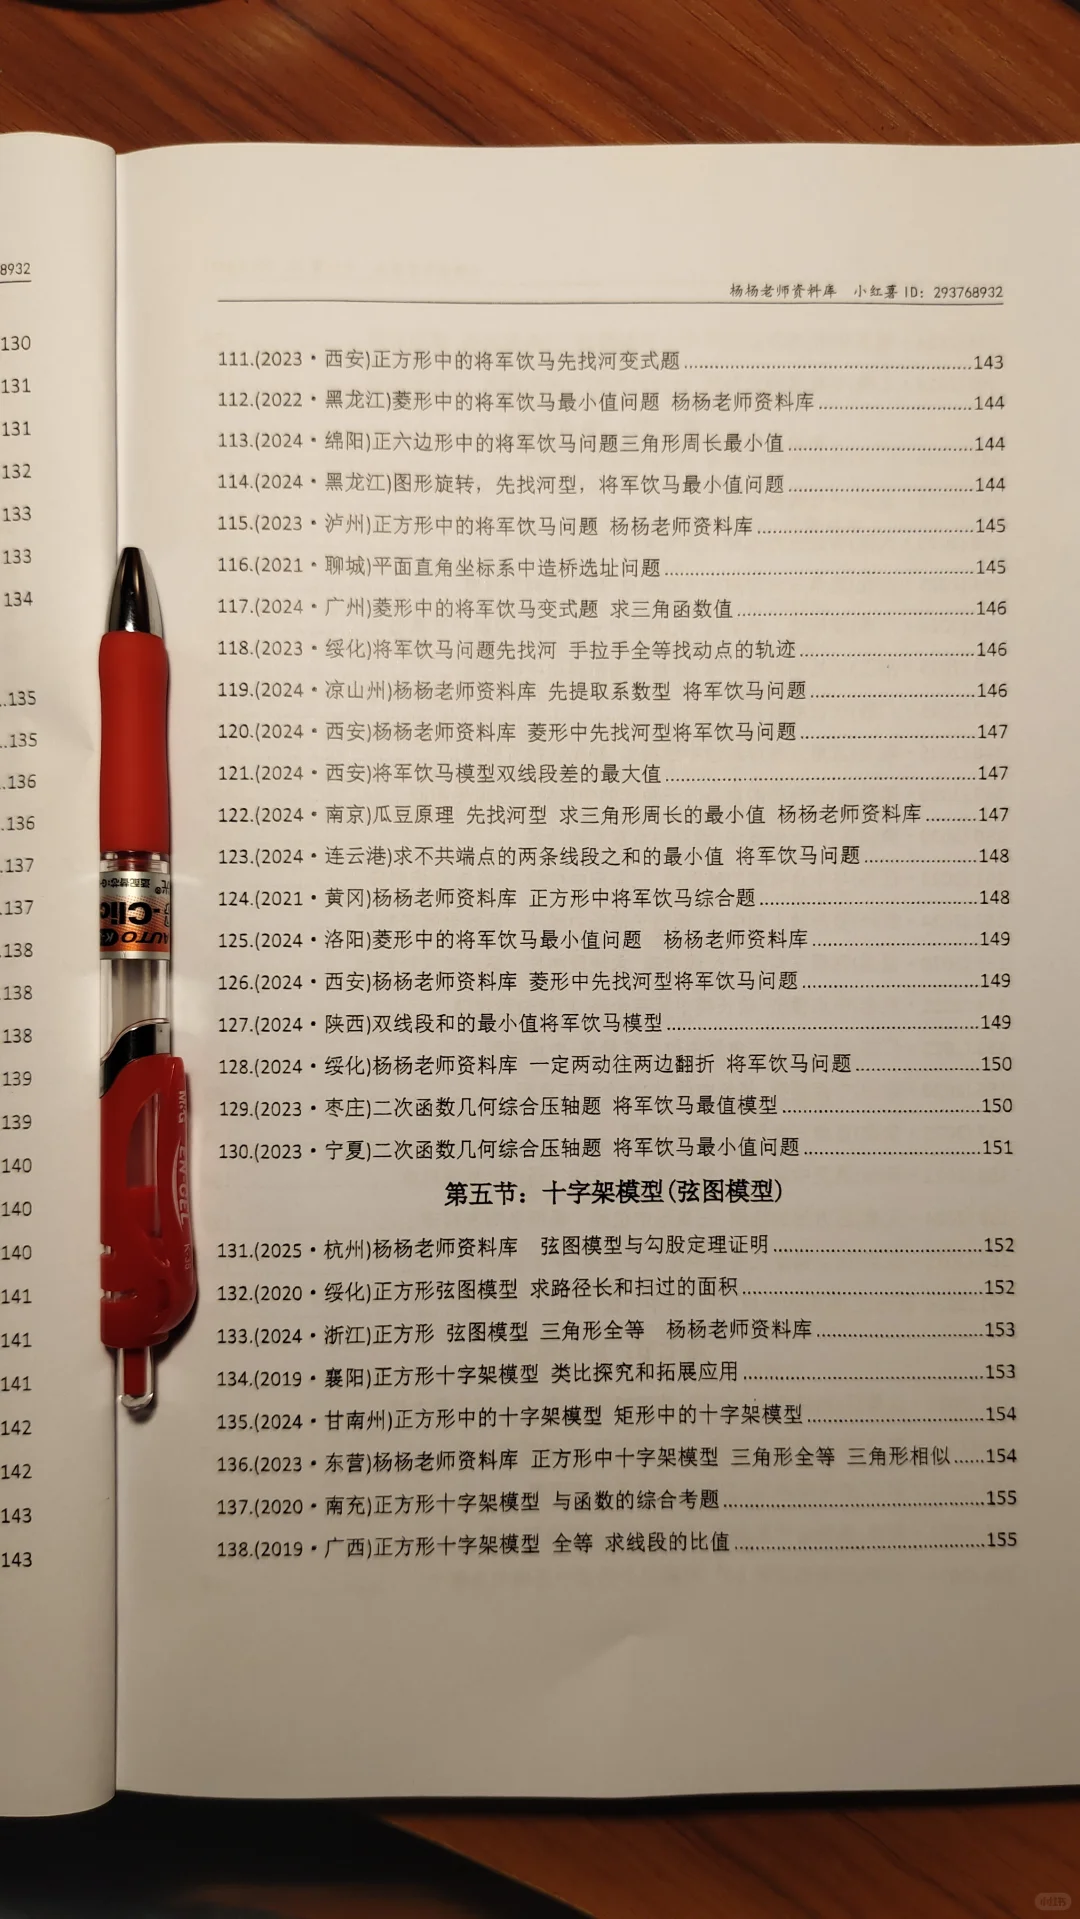 8932
130
131
131
132
133
133
134
..135
..135
.136
.136
.137
.137
.138
.138
138
139
139
140
140
140
141
141
141
142
142
143
143
杨杨老师资料库 小红薯 ID：293768932
111.(2023·西安)正方形中的将军饮马先找河变式题......143
112.(2022·黑龙江)菱形中的将军饮马最小值问题 杨杨老师资料库......144
113.(2024·绵阳)正六边形中的将军饮马问题三角形周长最小值......144
114.(2024·黑龙江)图形旋转，先找河型，将军饮马最小值问题......144
115.(2023·泸州)正方形中的将军饮马问题 杨杨老师资料库......145
116.(2021·聊城)平面直角坐标系中造桥选址问题......145
117.(2024·广州)菱形中的将军饮马变式题 求三角函数值......146
118.(2023·绥化)将军饮马问题先找河 手拉手全等找动点的轨迹......146
119.(2024·凉山州)杨杨老师资料库 先提取系数型 将军饮马问题......146
120.(2024·西安)杨杨老师资料库 菱形中先找河型将军饮马问题......147
121.(2024·西安)将军饮马模型双线段差的最大值......147
122.(2024·南京)瓜豆原理 先找河型 求三角形周长的最小值 杨杨老师资料库......147
123.(2024·连云港)求不共端点的两条线段之和的最小值 将军饮马问题......148
124.(2021·黄冈)杨杨老师资料库 正方形中将军饮马综合题......148
125.(2024·洛阳)菱形中的将军饮马最小值问题 杨杨老师资料库......149
126.(2024·西安)杨杨老师资料库 菱形中先找河型将军饮马问题......149
127.(2024·陕西)双线段和的最小值将军饮马模型......149
128.(2024·绥化)杨杨老师资料库 一定两动往两边翻折 将军饮马问题......150
129.(2023·枣庄)二次函数几何综合压轴题 将军饮马最值模型......150
130.(2023·宁夏)二次函数几何综合压轴题 将军饮马最小值问题......151
第五节：十字架模型(弦图模型)
131.(2025·杭州)杨杨老师资料库 弦图模型与勾股定理证明......152
132.(2020·绥化)正方形弦图模型 求路径长和扫过的面积......152
133.(2024·浙江)正方形 弦图模型 三角形全等 杨杨老师资料库......153
134.(2019·襄阳)正方形十字架模型 类比探究和拓展应用......153
135.(2024·甘南州)正方形中的十字架模型 矩形中的十字架模型......154
136.(2023·东营)杨杨老师资料库 正方形中十字架模型 三角形全等 三角形相似......154
137.(2020·南充)正方形十字架模型 与函数的综合考题......155
138.(2019·广西)正方形十字架模型 全等 求线段的比值......155
AUTO
-Clic
M&G EN-GEL